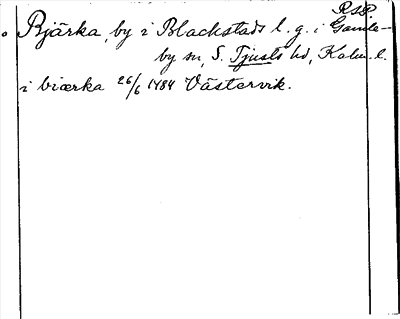 RSP
Bjärka, by i Blackstads l. g. i Gamle-
by sn, S. Tjusts hd, Kalm. l.
i biærka 26/6 1484 Västervik.